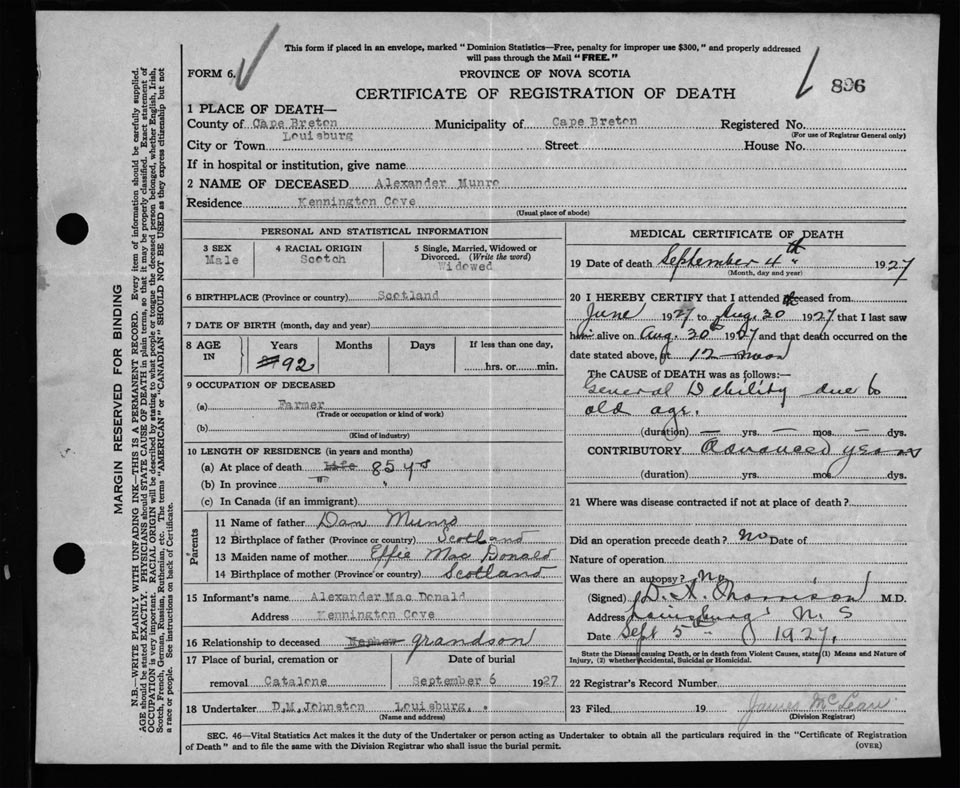 This form if placed in an envelope, marked "Dominion Statistics—Free, penalty for improper use $300," and properly addressed
will pass through the Mail "FREE."
FORM 6. PROVINCE OF NOVA SCOTIA
CERTIFICATE OF REGISTRATION OF DEATH 896
1 PLACE OF DEATH—
County of Cape Breton Municipality of Cape Breton Registered No.
(For use of Registrar General only)
City or Town Louisburg Street House No.
If in hospital or institution, give name
2 NAME OF DECEASED Alexander Munro
Residence Kennington Cove
(Usual place of abode)
PERSONAL AND STATISTICAL INFORMATION
3 SEX Male
4 RACIAL ORIGIN Scotch
5 Single, Married, Widowed or
Divorced. (Write the word)
Widowed
6 BIRTHPLACE (Province or country) Scotland
7 DATE OF BIRTH (month, day and year)
8 AGE IN Years Months Days If less than one day,
92 hrs. or min.
9 OCCUPATION OF DECEASED
(a) Farmer
(Trade or occupation or kind of work)
(b)
(Kind of industry)
10 LENGTH OF RESIDENCE (in years and months)
(a) At place of death Life 85 ys
(b) In province "
(c) In Canada (if an immigrant)
Parents
11 Name of father Dan Munro
12 Birthplace of father (Province or country) Scotland
13 Maiden name of mother Effie Mac Donald
14 Birthplace of mother (Province or country) Scotland
15 Informant's name Alexander Mac Donald
Address Kennington Cove
16 Relationship to deceased Nephew grandson
17 Place of burial, cremation or Date of burial
removal Catalone September 6 1927
18 Undertaker D.M.Johnston Louisburg.
(Name and address)
MEDICAL CERTIFICATE OF DEATH
19 Date of death September 4th 1927
(Month, day and year)
20 I HEREBY CERTIFY that I attended deceased from
June 1927 to Aug. 30 1927 that I last saw
him alive on Aug. 30th 1927 and that death occurred on the
date stated above, at 12 noon
The CAUSE of DEATH was as follows:—
General Debility due to
old age.
(duration) — yrs. — mos. — dys.
CONTRIBUTORY Advanced years
(duration) yrs. mos. dys.
21 Where was disease contracted if not at place of death?
Did an operation precede death? No Date of
Nature of operation
Was there an autopsy? No
(Signed) M.D.
Address Louisburg N.S
Date Sept 5th 1927.
State the Disease causing Death, or in death from Violent Causes, state (1) Means and Nature of
Injury, (2) whether Accidental, Suicidal or Homicidal.
22 Registrar's Record Number
23 Filed 19 James McLean
(Division Registrar)
SEC. 46—Vital Statistics Act makes it the duty of the Undertaker or person acting as Undertaker to obtain all the particulars required in the "Certificate of Registration
of Death" and to file the same with the Division Registrar who shall issue the burial permit. (OVER)
MARGIN RESERVED FOR BINDING
N.B.—WRITE PLAINLY WITH UNFADING INK—THIS IS A PERMANENT RECORD. Every item of information should be carefully supplied.
AGE should be stated EXACTLY. PHYSICIANS should STATE CAUSE OF DEATH in plain terms, so that it may be properly classified. Exact statement of
OCCUPATION is very important. RACIAL ORIGIN will be described by stating to what people or tongue the deceased person belonged, whether English, Irish,
Scotch, French, German, Russian, Ruthenian, etc. The terms "AMERICAN" or "CANADIAN" SHOULD NOT BE USED as they express citizenship but not
a race or people. See instructions on back of Certificate.